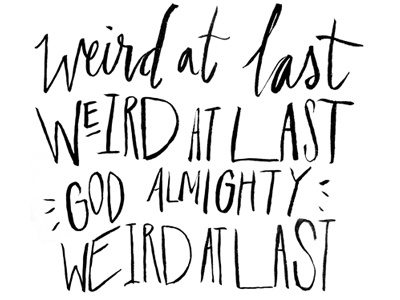 weird at last
WEIRD AT LAST
GOD ALMIGHTY
WEIRD AT LAST